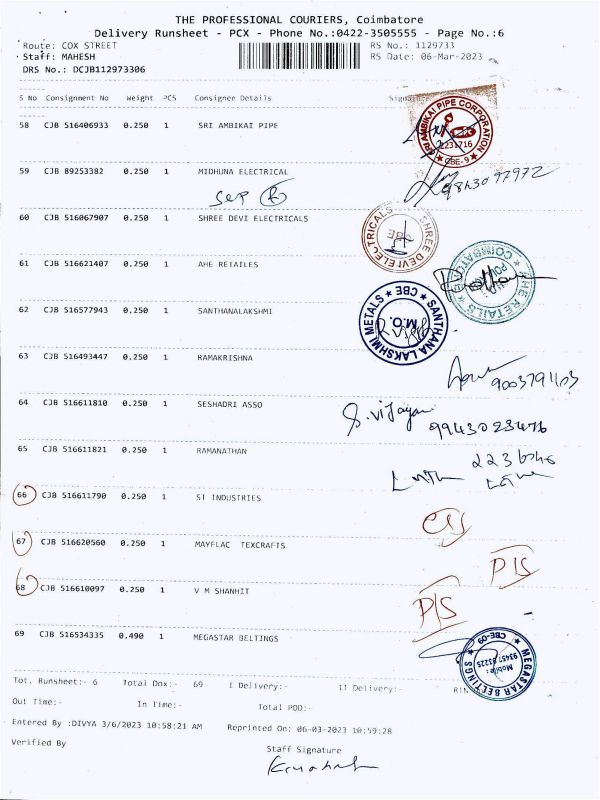 THE PROFESSIONAL COURIERS, Coimbatore
Delivery Runsheet - PCX - Phone No.:0422-3505555 - Page No.:6
Route: COX STREET RS No.: 1129733
Staff: MAHESH RS Date: 06-Mar-2023
DRS No.: DCJB112973306
S No Consignment No Weight PCS Consignee Details
58 CJB 516406933 0.250 1 SRI AMBIKAI PIPE
SRI AMBIKAI PIPE CORPORATION
2231716
CBE-9
59 CJB 89253382 0.250 1 MIDHUNA ELECTRICAL
60 CJB 516067907 0.250 1 SHREE DEVI ELECTRICALS
SHREE DEVI ELECTRICALS
CBE
61 CJB 516621407 0.250 1 AHE RETAILES
THE RETAILS
62 CJB 516577943 0.250 1 SANTHANALAKSHMI
SANTHANA LAKSHMI METALS ★ CBE ★
M.O.
63 CJB 516493447 0.250 1 RAMAKRISHNA
64 CJB 516611810 0.250 1 SESHADRI ASSO
S. Vijayan
9943023476
65 CJB 516611821 0.250 1 RAMANATHAN
66 CJB 516611790 0.250 1 SI INDUSTRIES
67 CJB 516620560 0.250 1 MAYFLAC TEXCRAFTS
P/S
68 CJB 516610097 0.250 1 V M SHANHIT
P/S
69 CJB 516534335 0.490 1 MEGASTAR BELTINGS
MEGASTAR BELTINGS ★ CBE-09 ★
Mobile:
93457 83225
Tot. Runsheet:- 6 Total Dox:- 69 I Delivery:- II Delivery:-
Out Time:- In Time:- Total POD:-
Entered By :DIVYA 3/6/2023 10:58:21 AM Reprinted On: 06-03-2023 10:59:28
Verified By
Staff Signature